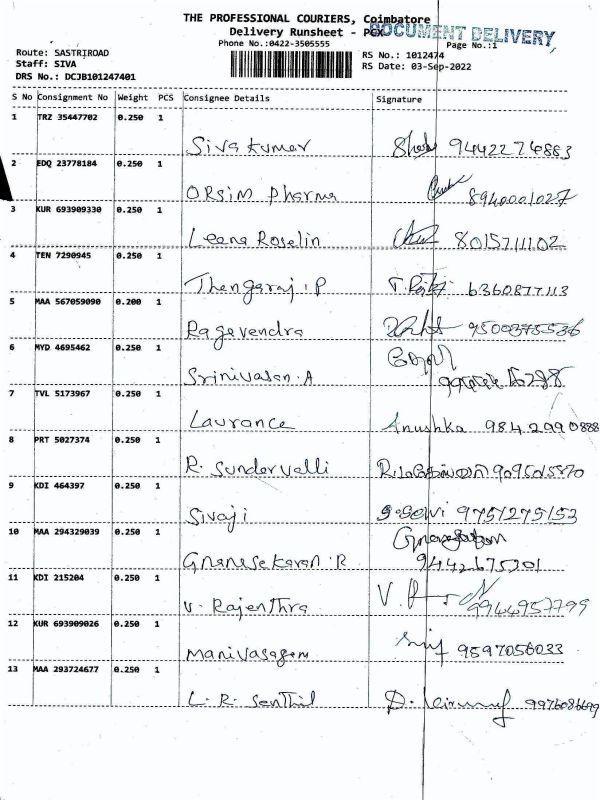 THE PROFESSIONAL COURIERS, Coimbatore
Delivery Runsheet - PCX
DOCUMENT DELIVERY
Phone No.:0422-3505555
Page No.:1
Route: SASTRIROAD
Staff: SIVA
DRS No.: DCJB101247401
RS No.: 1012474
RS Date: 03-Sep-2022
S No Consignment No Weight PCS Consignee Details Signature
1 TRZ 35447702 0.250 1
Sivakumar 9442274883
2 EDQ 23778184 0.250 1
ORSIM Pharma 8940001027
3 KUR 693909330 0.250 1
Leena Roselin 8015711102
4 TEN 7290945 0.250 1
Thengaraj.P 6360877113
5 MAA 567059090 0.200 1
Ragavendra 9500375536
6 MYD 4695462 0.250 1
Srinivasan.A
7 TVL 5173967 0.250 1
Laurance Anushka 9842990888
8 PRT 5027374 0.250 1
R. Sundervalli
9 KDI 464397 0.250 1
Sivaji S.Selvi 9751275153
10 MAA 294329039 0.250 1
Gnanasekaran.R 9442675301
11 KDI 215204 0.250 1
V. Rajenthra 9944957799
12 KUR 693909026 0.250 1
Manivasagam 9597056033
13 MAA 293724677 0.250 1
L. R. Senthil 9976086699